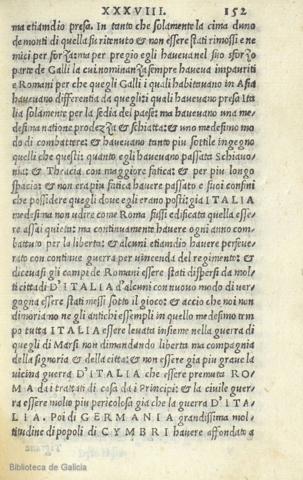 XXXVIII. 152
ma etiamdio presa. In tanto che solamente la cima duno
de monti di quella fu ritenuto & non essere stati rimossi e ne
mici per forza: ma per pregio egli havevanel suo sforzo
parte de Galli la cui nominanza sempre haveva impauriti
e Romani per che quegli Galli i quali habitavano in Asia
havevano differentia da quegli: quali havevano presa Ita
lia solamente per la sedia del paese: ma havevano una me-
desima natione prodezza & schiatta: & uno medesimo mo
do di combattere: & havevano tanto piu sottile ingegno
quelli che questi: quanto egli havevano passata Schiavo-
nia: & Thracia con maggiore fatica: & per piu longo
spacio: & non era piu fatica havere passato e suoi confini
che possidere quegli dove egli erano posti: gia ITALIA
medesima non udire come Roma fussi edificata quella esse-
re assai quieta: ma continuamente havere ogni anno com-
battuto per la liberta: & alcuni etiandio havere perseve-
rato con continue guerra per vincenda del regimento: &
dicevasi gli campi de Romani essere stati dispersi da mol-
ti citta di D'ITALIA d'alcuni con nuovo modo di ver-
gogna essere stati messi sotto il gioco: & accio che noi non
dimoriano ne gli antichi essempli in quello medesimo tem
po tutta ITALIA essere levata insieme nella guerra di
quegli di Marsi non dimandando liberta ma compagnia
della signoria & della citta: & non essere gia piu grave la
vicina guerra D'ITALIA che essere premuta RO-
MA da i trattati di cosa da i Principi: & la civile guer-
ra essere molto piu pericolosa gia che la guerra D'ITA-
LIA. Poi di GERMANIA grandissima mol-
titudine di popoli di CYMBRI havere affondato a
Biblioteca de Galicia